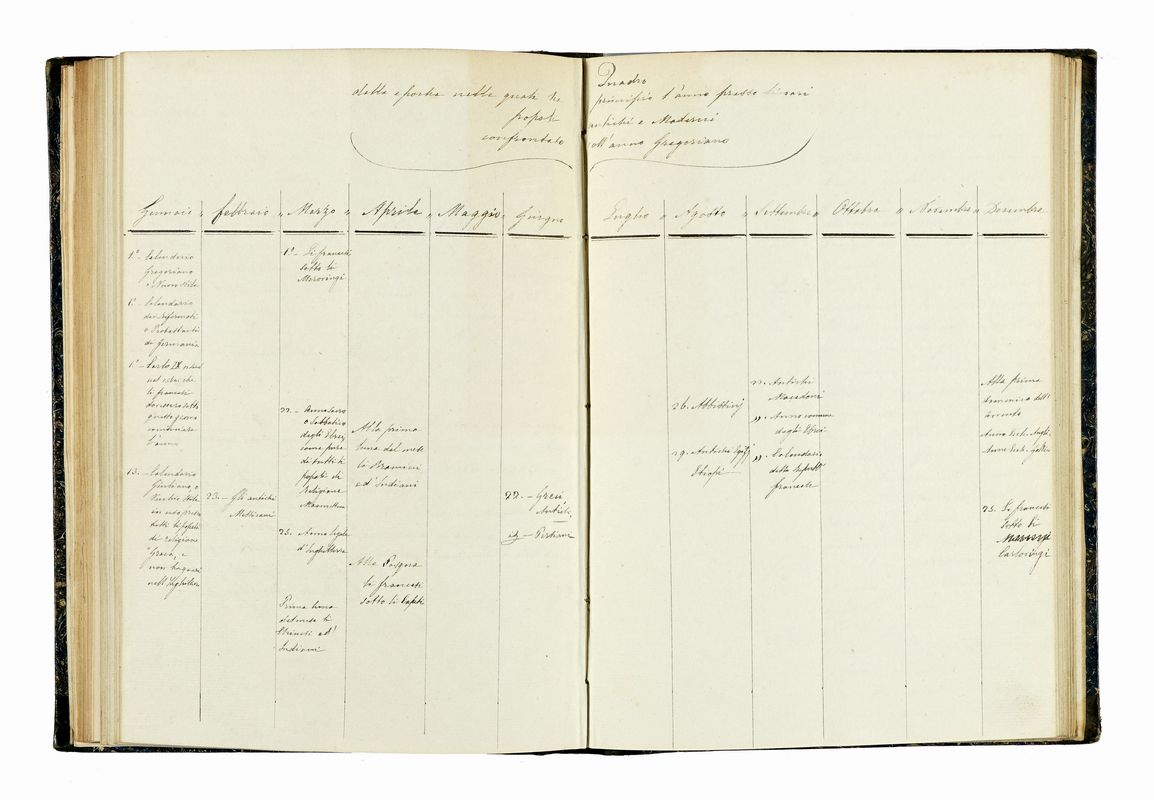 Quadro
della epoca nella quale ha principio l'anno presso li vari
popoli antichi e Moderni
confrontato coll'anno Gregoriano
Gennaio " febbraio " Marzo " Aprile " Maggio " Giugno Luglio " Agosto " Settembre " Ottobre " Novembre " Dicembre
1.° - Calendario
Gregoriano
o Nuovo Stile
1.° - Calendario
dei riformati
o Protestanti
di Germania
1.° - Carlo IX
li francesi
questo giorno
cominciare
l'anno
13. - Calendario
Giuliano o
Vecchio Stile
in uso presso
tutti li popoli
di religione
Greca, e
non
nell'Inghilterra
23. - Gli antichi
Messicani
1.° - Li francesi
sotto li
Merovingi
22. - Anno Sacro
o Sabbatico
degli Ebrei,
come pure
di tutti li
popoli di
religione
Maomettana
25. - Anno legale
d'Inghilterra
Prima luna
del mese li
Chinesi ed
Indiani
Alla prima
luna del mese
li Bramini
ed Indiani
Alla Pasqua
li francesi
sotto li Capeti
22. - Greci
Antichi
id - Persiani
26. Abbissinj
29. Antichi Egizj
Etiopi
22. Antichi
Macedoni
" Anno comune
degli Ebrei
" Calendario
della Repub.
francese
Alla prima
domenica dell'
avvento
Anno Eccl. Angli.
Anno Eccl.
25. Li francesi
sotto li
Carlovingi